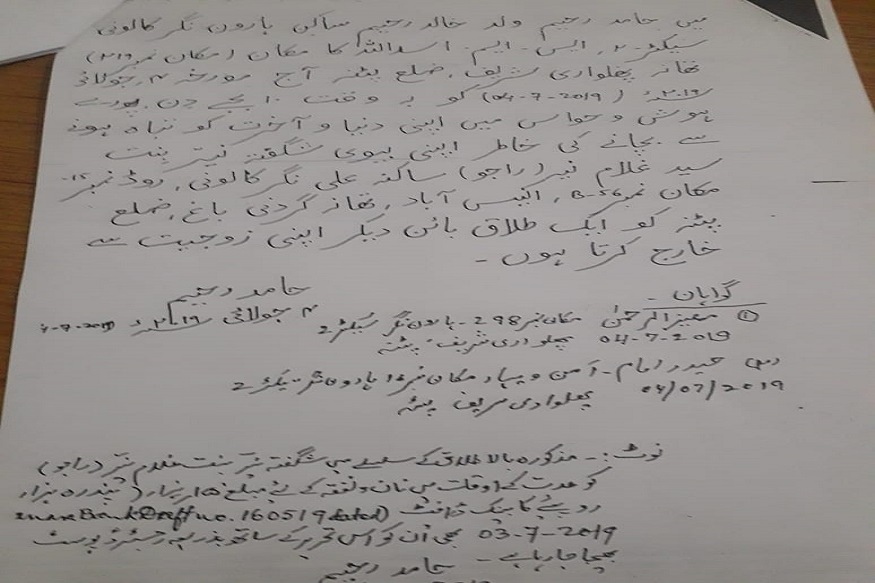 میں حامد رحیم ولد خالد رحیم ساکن ہارون نگر کالونی
سیکٹر-۲، ایس-ایم-اسداللہ کا مکان (مکان نمبر ۲۱۶)
تھانہ پھلواری شریف، ضلع پٹنہ آج مورخہ ۴، جولائی
۲۰۱۹ء (04-7-2019) کو بوقت ۱۰ بجے دن، پورے
ہوش و حواس میں اپنی دنیا و آخرت کو تباہ ہونے
سے بچانے کی خاطر اپنی بیوی شگفتہ نیر بنت
سید غلام نیر (راجو) ساکنہ علی نگر کالونی، روڈ نمبر
مکان نمبر B-56، انیس آباد، تھانہ گردنی باغ، ضلع
پٹنہ کو ایک طلاق بائن دیکر اپنی زوجیت سے
خارج کرتا ہوں۔
حامد رحیم
۴ جولائی ۲۰۱۹ء
گواہان -
① معیز الرحمٰن مکان نمبر 298- ہارون نگر سیکٹر 2
04-7-2019 پھلواری شریف، پٹنہ
حیدر امام - مکان نمبر ہارون نگر سیکٹر 2
04/07/2019 پھلواری شریف پٹنہ
نوٹ :- مذکورہ بالا طلاق کے سلسلے میں شگفتہ نیر بنت غلام نیر (راجو)
کو عدت کے اوقات میں نان و نفقہ کے لئے مبلغ ۱۵ ہزار (پندرہ ہزار
روپئے کا بینک ڈرافٹ (Bank Draft no. 160519 dated
03-7-2019 بھی اُن کو اس تحریر کے ساتھ بذریعہ رجسٹرڈ پوسٹ
بھیجا جا رہا ہے۔ حامد رحیم